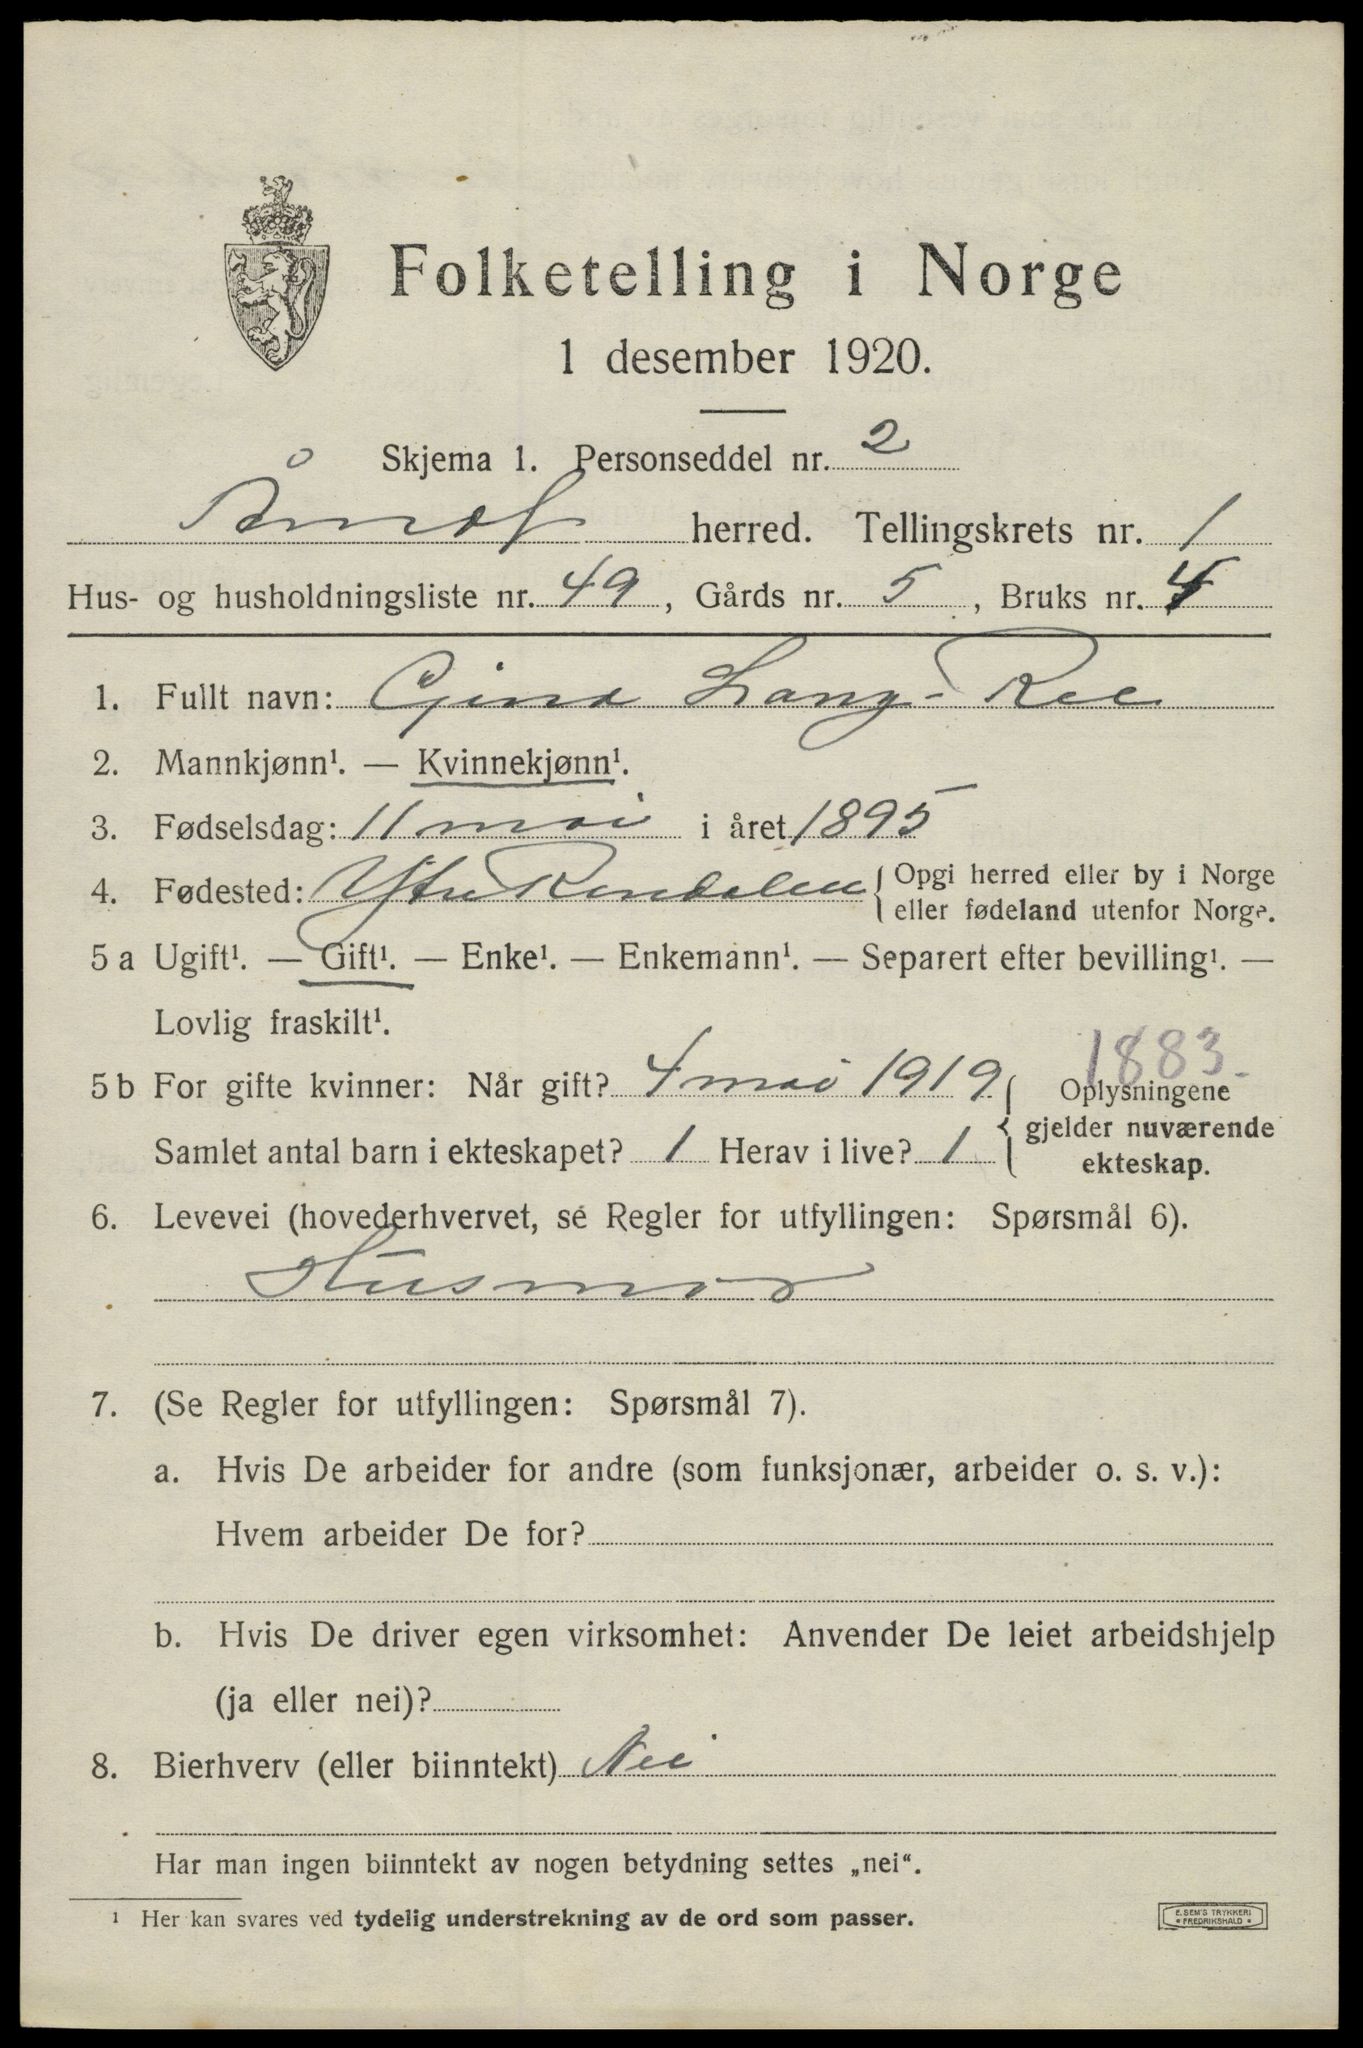 Folketelling i Norge
1 desember 1920.
Skjema 1. Personseddel nr. 2
Åmot herred. Tellingskrets nr. 1
Hus- og husholdningsliste nr. 49, Gårds nr. 5, Bruks nr. 4
1. Fullt navn: Gjina Lang-Ree
2. Mannkjønn¹. — Kvinnekjønn¹.
3. Fødselsdag: 11 mai i året 1895
4. Fødested: Ytre Rendalen { Opgi herred eller by i Norge
eller fødeland utenfor Norge.
5 a Ugift¹. — Gift¹. — Enke¹. — Enkemann¹. — Separert efter bevilling¹. —
Lovlig fraskilt¹.
1883.
5 b For gifte kvinner: Når gift? 4 mai 1919 { Oplysningene
gjelder nuværende
Samlet antal barn i ekteskapet? 1 Herav i live? 1 ekteskap.
6. Levevei (hovederhvervet, se Regler for utfyllingen: Spørsmål 6).
Husmor
7. (Se Regler for utfyllingen: Spørsmål 7).
a. Hvis De arbeider for andre (som funksjonær, arbeider o. s. v.):
Hvem arbeider De for?
b. Hvis De driver egen virksomhet: Anvender De leiet arbeidshjelp
(ja eller nei)?
8. Bierhverv (eller biinntekt) Nei
Har man ingen biinntekt av nogen betydning settes „nei“.
¹ Her kan svares ved tydelig understrekning av de ord som passer.
E. SEM'S TRYKKERI
* FREDRIKSHALD *